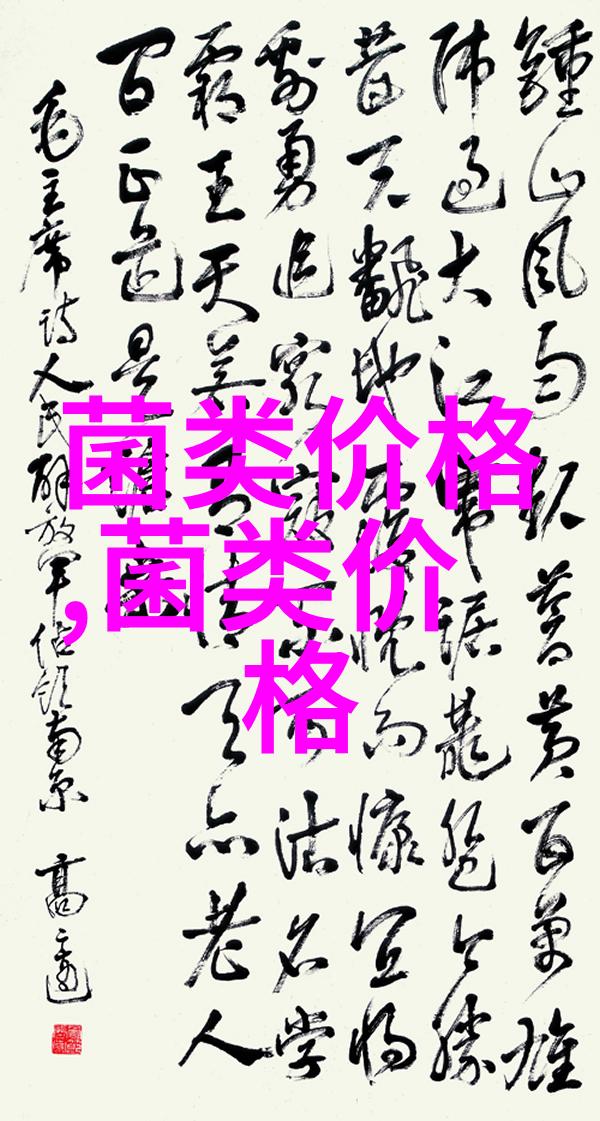 鍾山风雨起蒼黄百万雄
师过大江虎踞龍盘今胜
昔天翻地覆慨而慷宜将
剩勇追穷寇不可沽名学
霸王天若有情天亦老人
间正道是沧桑
毛主席诗人民解放军占领南京 高
菌类价格
,菌类价
格